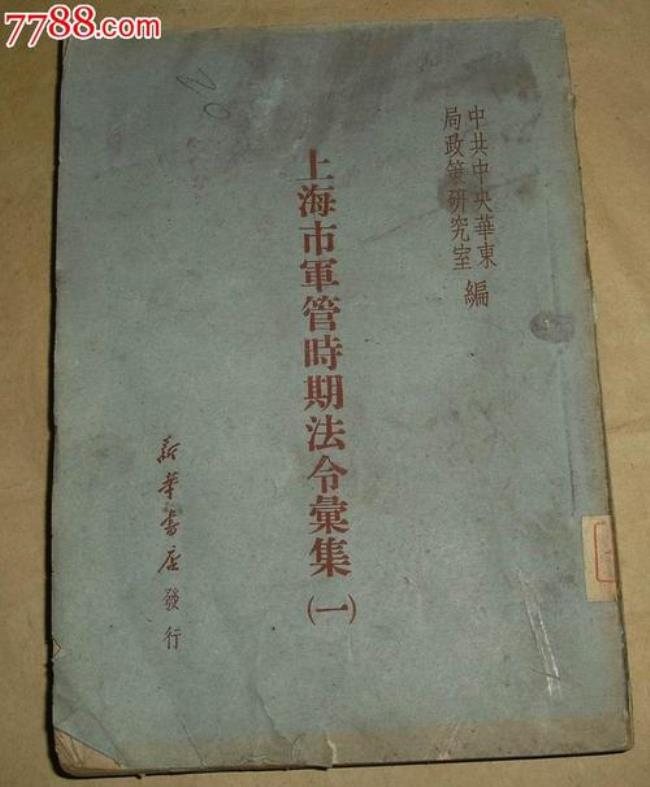 7788.com
中共中央華東
局政策研究室
編
上海市軍管時期法令彙集(一)
新華書店發行